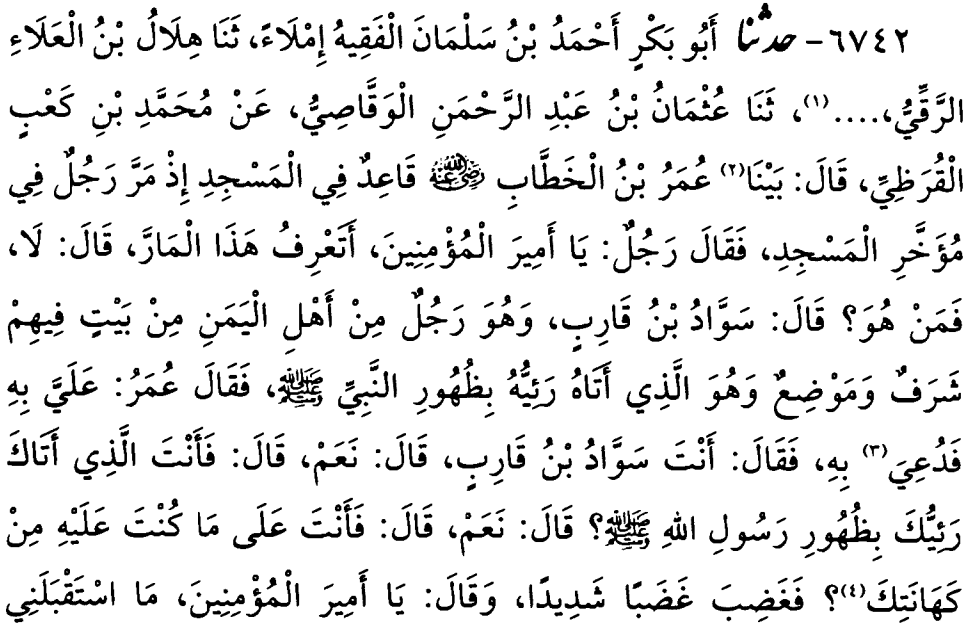 ٦٧٤٢- حدثنا أَبُو بَكْرٍ أَحْمَدُ بْنُ سَلْمَانَ الْفَقِيهُ إِمْلَاءً، ثَنَا هِلَالُ بْنُ الْعَلَاءِ
الرَّقِّيُّ،....(١)، ثَنَا عُثْمَانُ بْنُ عَبْدِ الرَّحْمَنِ الْوَقَّاصِيُّ، عَنْ مُحَمَّدِ بْنِ كَعْبٍ
الْقُرَظِيِّ، قَالَ: بَيْنَا(٢) عُمَرُ بْنُ الْخَطَّابِ رضي الله عنه قَاعِدٌ فِي الْمَسْجِدِ إِذْ مَرَّ رَجُلٌ فِي
مُؤَخَّرِ الْمَسْجِدِ، فَقَالَ رَجُلٌ: يَا أَمِيرَ الْمُؤْمِنِينَ، أَتَعْرِفُ هَذَا الْمَارَّ، قَالَ: لَا،
فَمَنْ هُوَ؟ قَالَ: سَوَّادُ بْنُ قَارِبٍ، وَهُوَ رَجُلٌ مِنْ أَهْلِ الْيَمَنِ مِنْ بَيْتٍ فِيهِمْ
شَرَفٌ وَمَوْضِعٌ وَهُوَ الَّذِي أَتَاهُ رَئِيُّهُ بِظُهُورِ النَّبِيِّ ﷺ، فَقَالَ عُمَرُ: عَلَيَّ بِهِ
فَدُعِيَ(٣) بِهِ، فَقَالَ: أَنْتَ سَوَّادُ بْنُ قَارِبٍ، قَالَ: نَعَمْ، قَالَ: فَأَنْتَ الَّذِي أَتَاكَ
رَئِيُّكَ بِظُهُورِ رَسُولِ اللهِ ﷺ؟ قَالَ: نَعَمْ، قَالَ: فَأَنْتَ عَلَى مَا كُنْتَ عَلَيْهِ مِنْ
كَهَانَتِكَ(٤)؟ فَغَضِبَ غَضَبًا شَدِيدًا، وَقَالَ: يَا أَمِيرَ الْمُؤْمِنِينَ، مَا اسْتَقْبَلَنِي